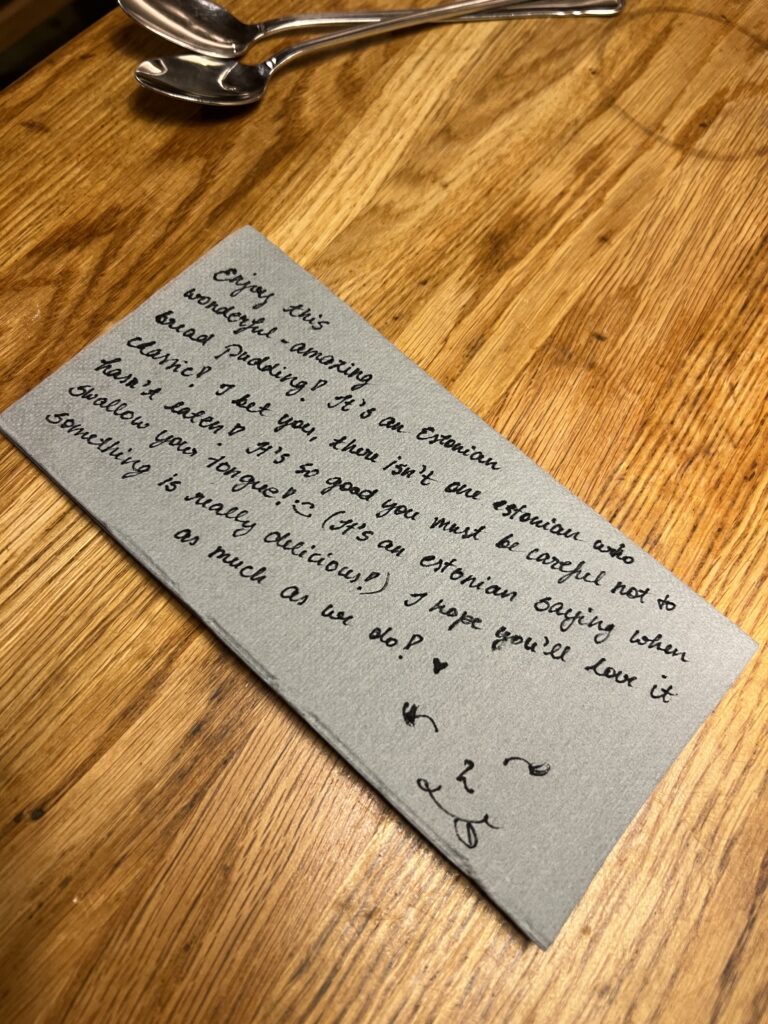 Enjoy this
wonderful-amazing
bread pudding! It's an Estonian
classic! I bet you, there isn't one estonian who
hasn't eaten! It's so good you must be careful not to
swallow your tongue! :) (It's an estonian saying when
something is really delicious!) I hope you'll love it
as much as we do! ♥